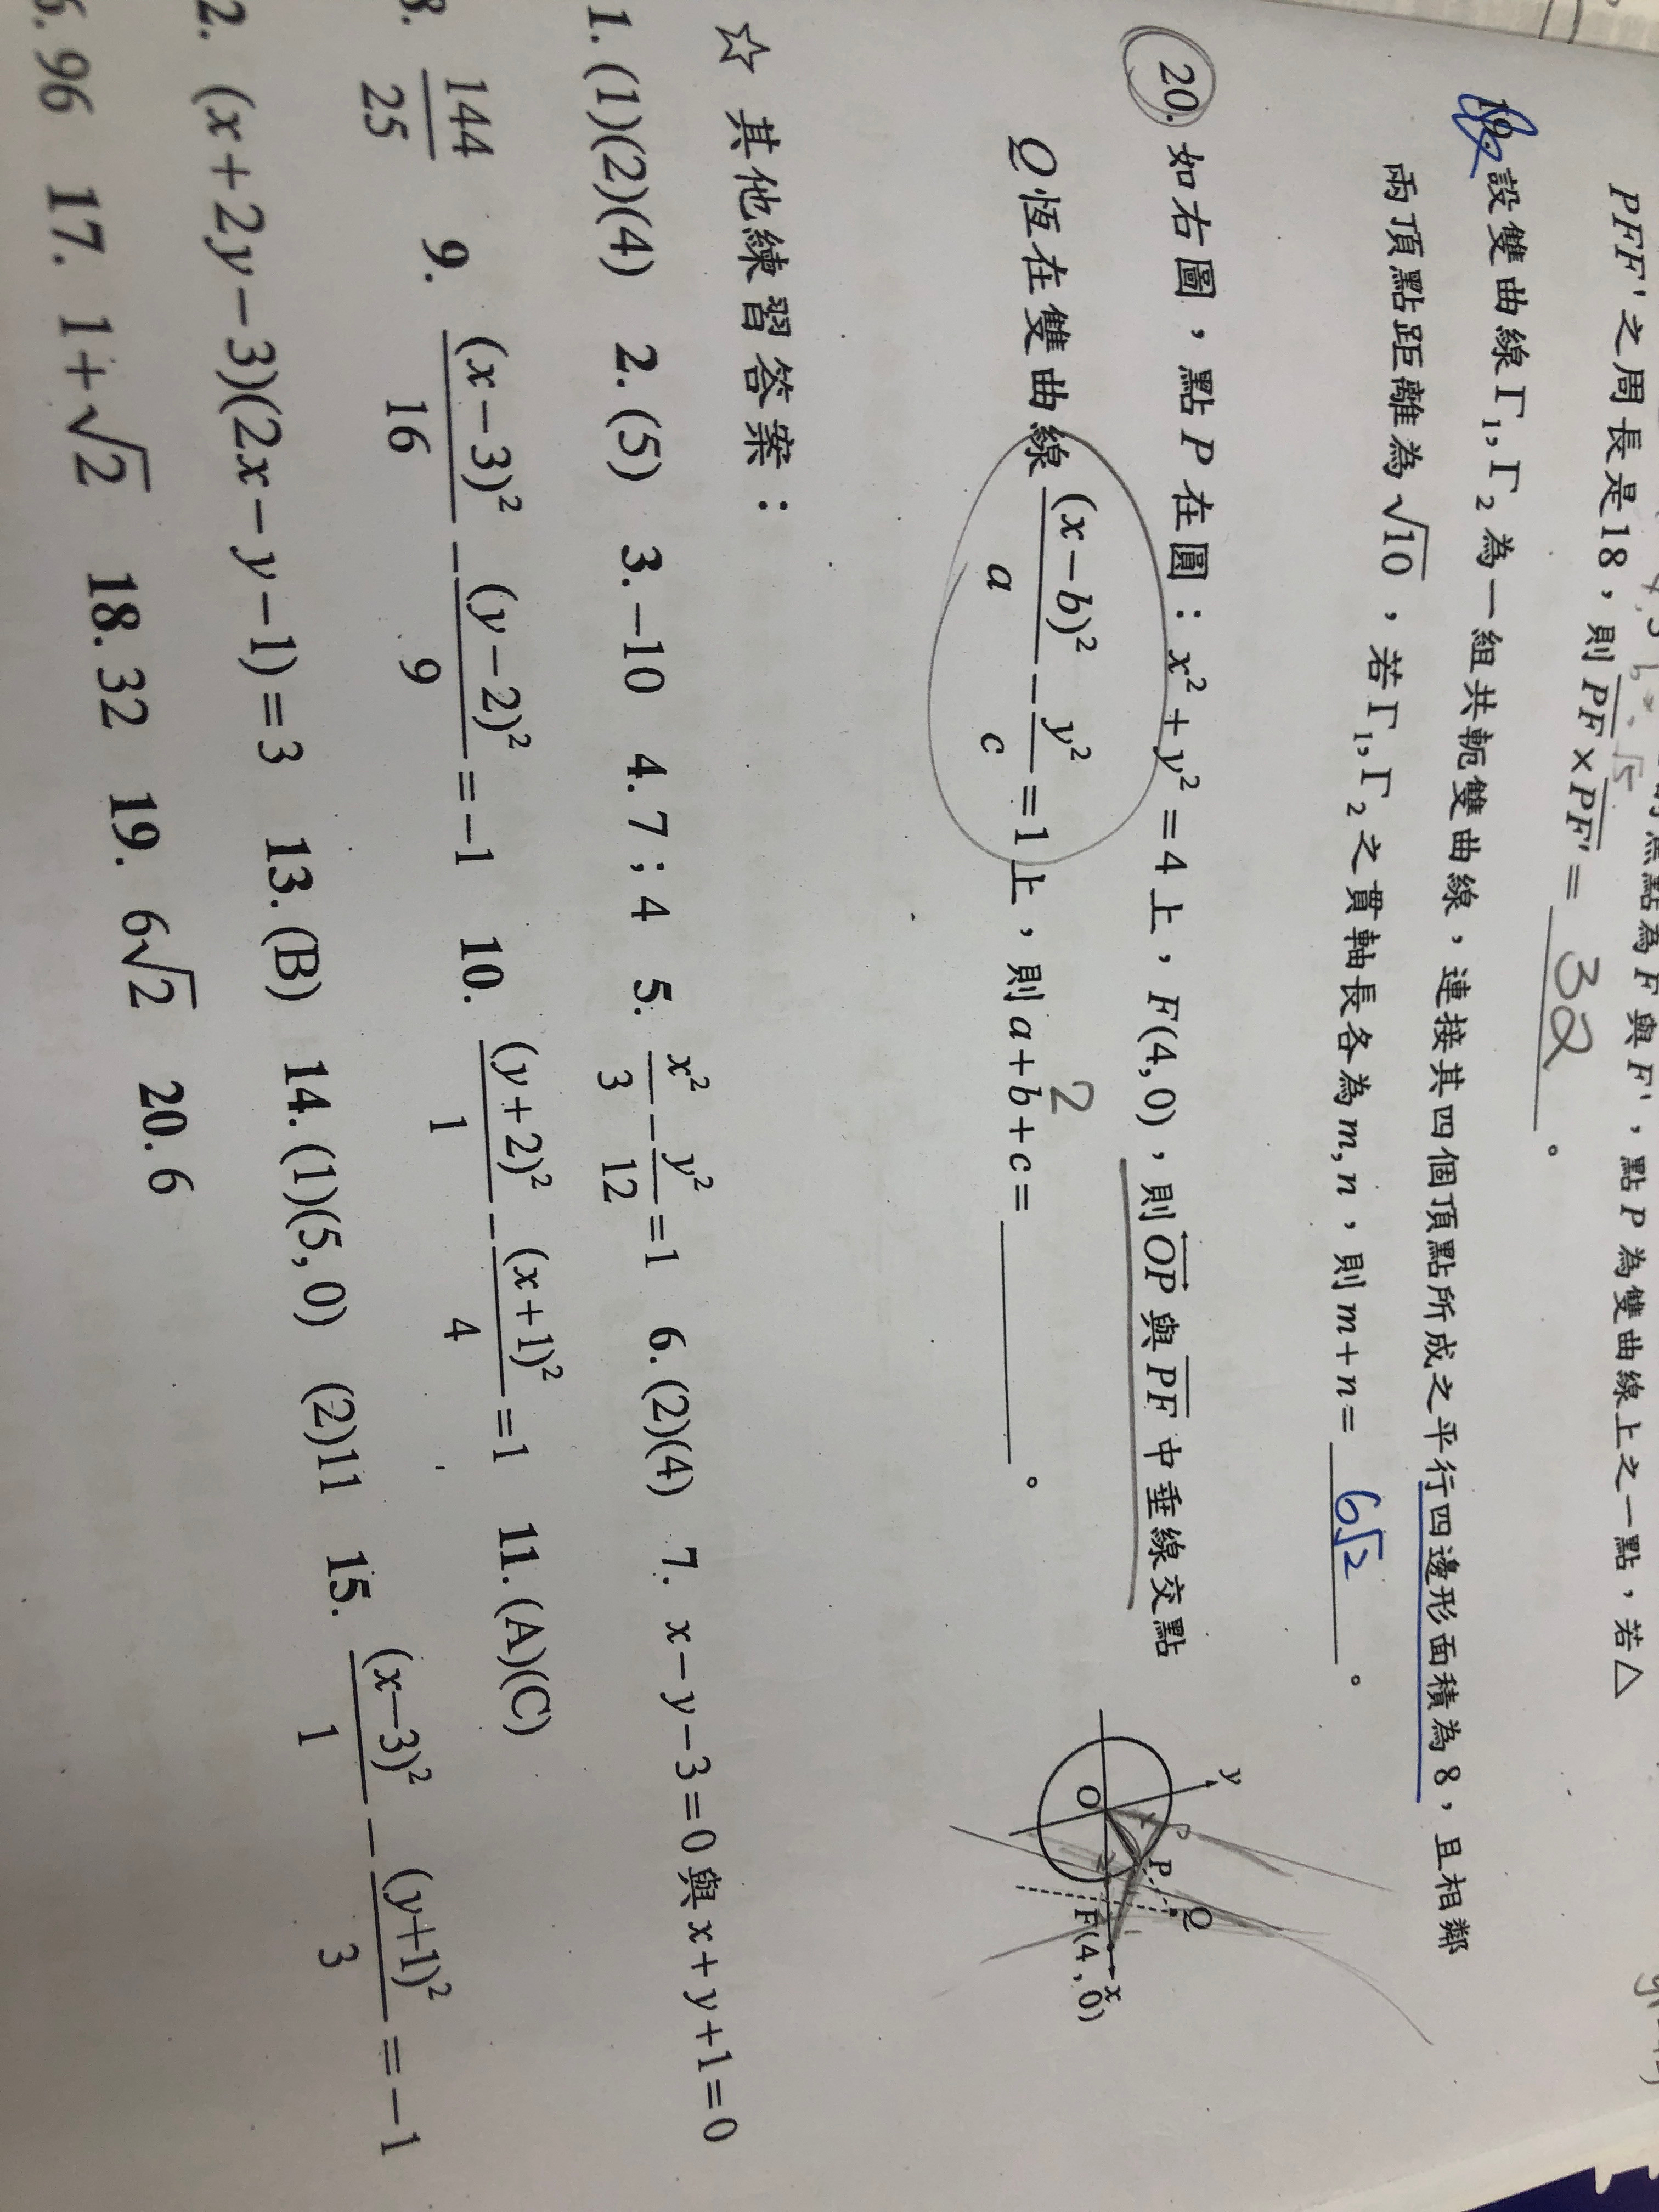 的焦點為F與F'，點P為雙曲線上之一點，若△
PFF'之周長是18，則PF×PF'= 32 。
19. 設雙曲線Γ₁, Γ₂為一組共軛雙曲線，連接其四個頂點所成之平行四邊形面積為8，且相鄰
兩頂點距離為√10，若Γ₁, Γ₂之貫軸長各為m, n，則m+n= 6√2 。
20. 如右圖，點P在圓：x²+y²=4上，F(4,0)，則OP與PF中垂線交點
Q恆在雙曲線(x-b)²/a - y²/c =1上，則a+b+c= 。
2
y
P
Q
O
x
F(4,0)
☆ 其他練習答案：
1. (1)(2)(4) 2. (5) 3. -10 4. 7；4 5. x²/3 - y²/12 =1 6. (2)(4) 7. x-y-3=0與x+y+1=0
8. 144/25 9. (x-3)²/16 - (y-2)²/9 =-1 10. (y+2)²/1 - (x+1)²/4 =1 11. (A)(C)
2. (x+2y-3)(2x-y-1)=3 13. (B) 14. (1)(5,0) (2)11 15. (x-3)²/1 - (y+1)²/3 =-1
6. 96 17. 1+√2 18. 32 19. 6√2 20. 6